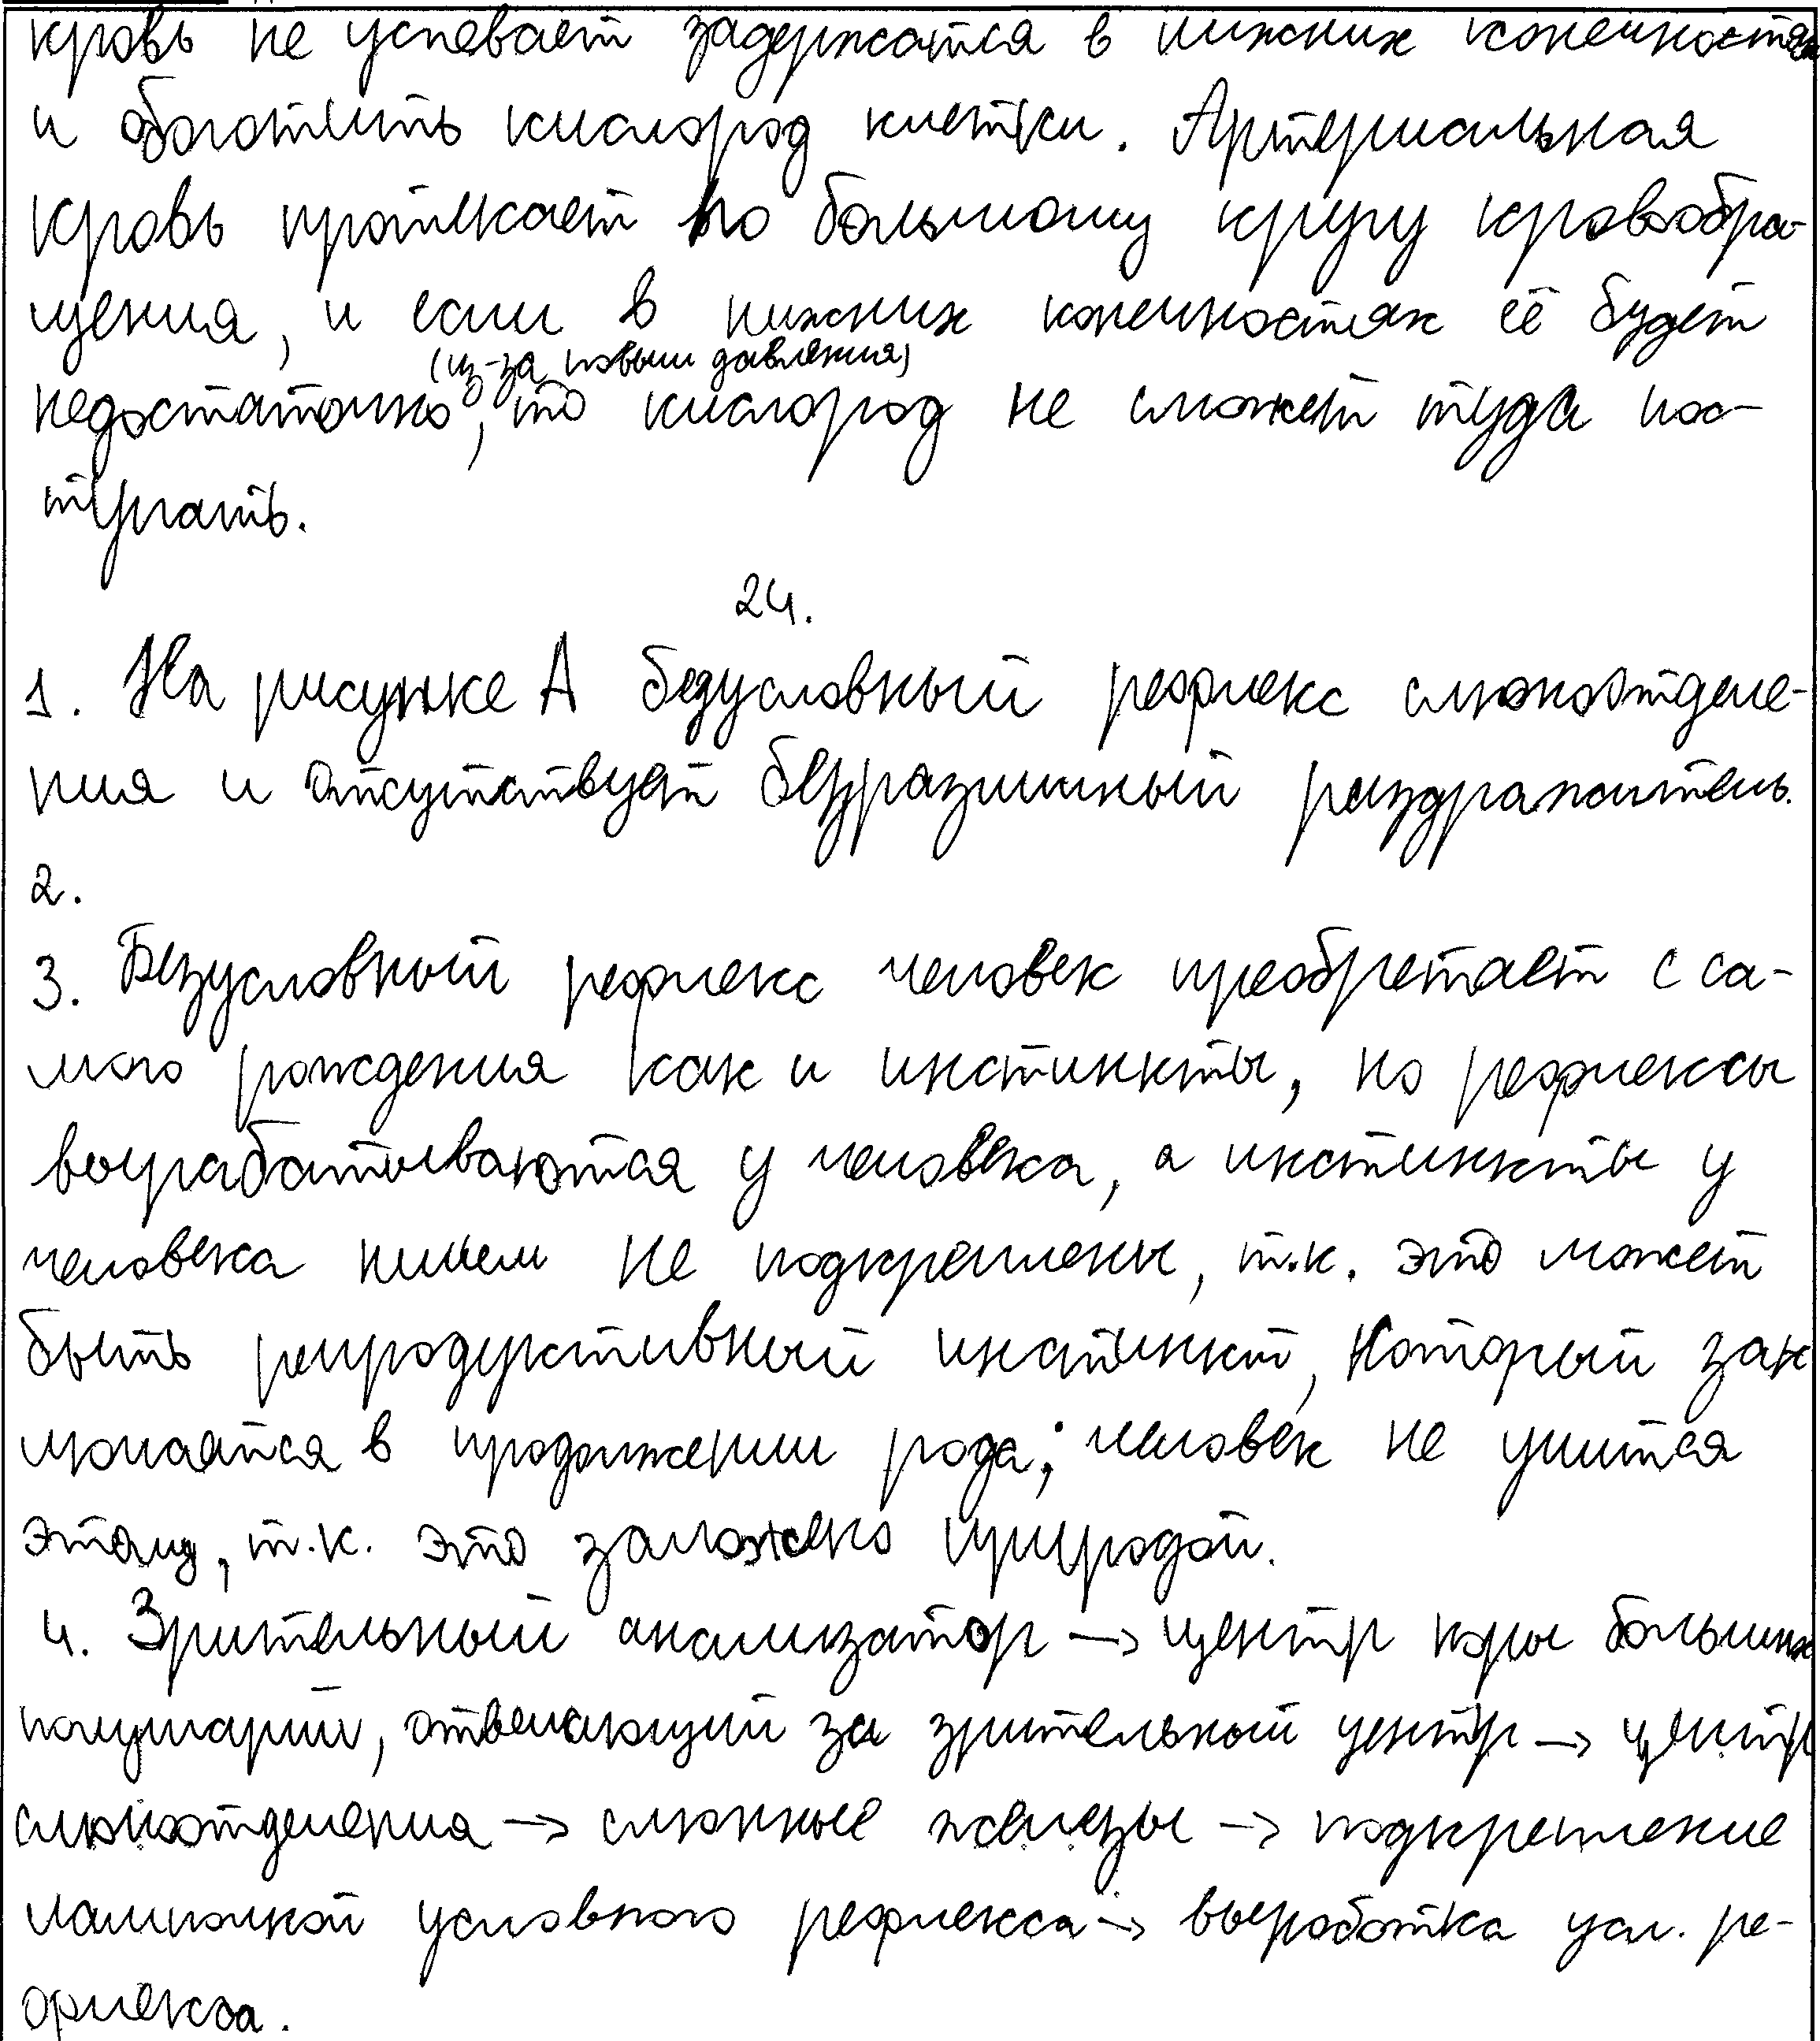 кровь не успевает задержатся в нижних конечностях
и обогатить кислород клетки. Артериальная
кровь протекает по большому кругу кровообра-
щения, и если в нижних конечностях её будет
(из-за повыш давления)
недостаточно, то кислород не сможет туда пос-
тупать.
24.
1. На рисунке А безусловный рефлекс слюноотделе-
ния и отсутствует безразличный раздражитель.
2.
3. Безусловный рефлекс человек преобретает с са-
мого рождения как и инстинкты, но рефлексы
вырабатываются у человека, а инстинкты у
человека ничем не подкреплены, т.к. это может
быть репродуктивный инстинкт, который зак
лючается в продолжении рода; человек не учится
этому, т.к. это заложено природой.
4. Зрительный анализатор → центр коры больших
полушарий, отвечающий за зрительный центр → центр
слюноотделения → слюнные железы → подкрепление
лампочкой условного рефлекса → выработка усл. ре-
флекса.